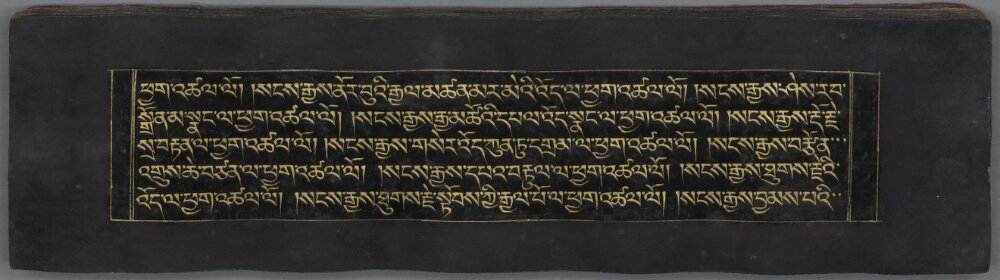 ཕྱག་འཚལ་ལོ། །སངས་རྒྱས་ནོར་བུའི་རྒྱལ་མཚན་མར་མེའི་འོད་ལ་ཕྱག་འཚལ་ལོ། །སངས་རྒྱས་ཤེས་རབ་
སྒྲོན་མ་སྣང་ལ་ཕྱག་འཚལ་ལོ། །སངས་རྒྱས་རྒྱ་མཚོའི་དཔལ་འོད་སྣང་ལ་ཕྱག་འཚལ་ལོ། །སངས་རྒྱས་རྡོ་རྗེ་
སྲ་བརྟན་ལ་ཕྱག་འཚལ་ལོ། །སངས་རྒྱས་གསེར་འོད་ཀུན་ཏུ་དྲམ་ལ་ཕྱག་འཚལ་ལོ། །སངས་རྒྱས་བརྩོན་
འགྲུས་ཆེ་བཙན་ལ་ཕྱག་འཚལ་ལོ། །སངས་རྒྱས་དཔའ་བརྟུལ་ལ་ཕྱག་འཚལ་ལོ། །སངས་རྒྱས་ཐུགས་རྗེའི་
འོད་ལ་ཕྱག་འཚལ་ལོ། །སངས་རྒྱས་ཐུགས་རྗེ་སྟོབས་ཀྱི་རྒྱལ་པོ་ལ་ཕྱག་འཚལ་ལོ། །སངས་རྒྱས་བྱམས་པའི་